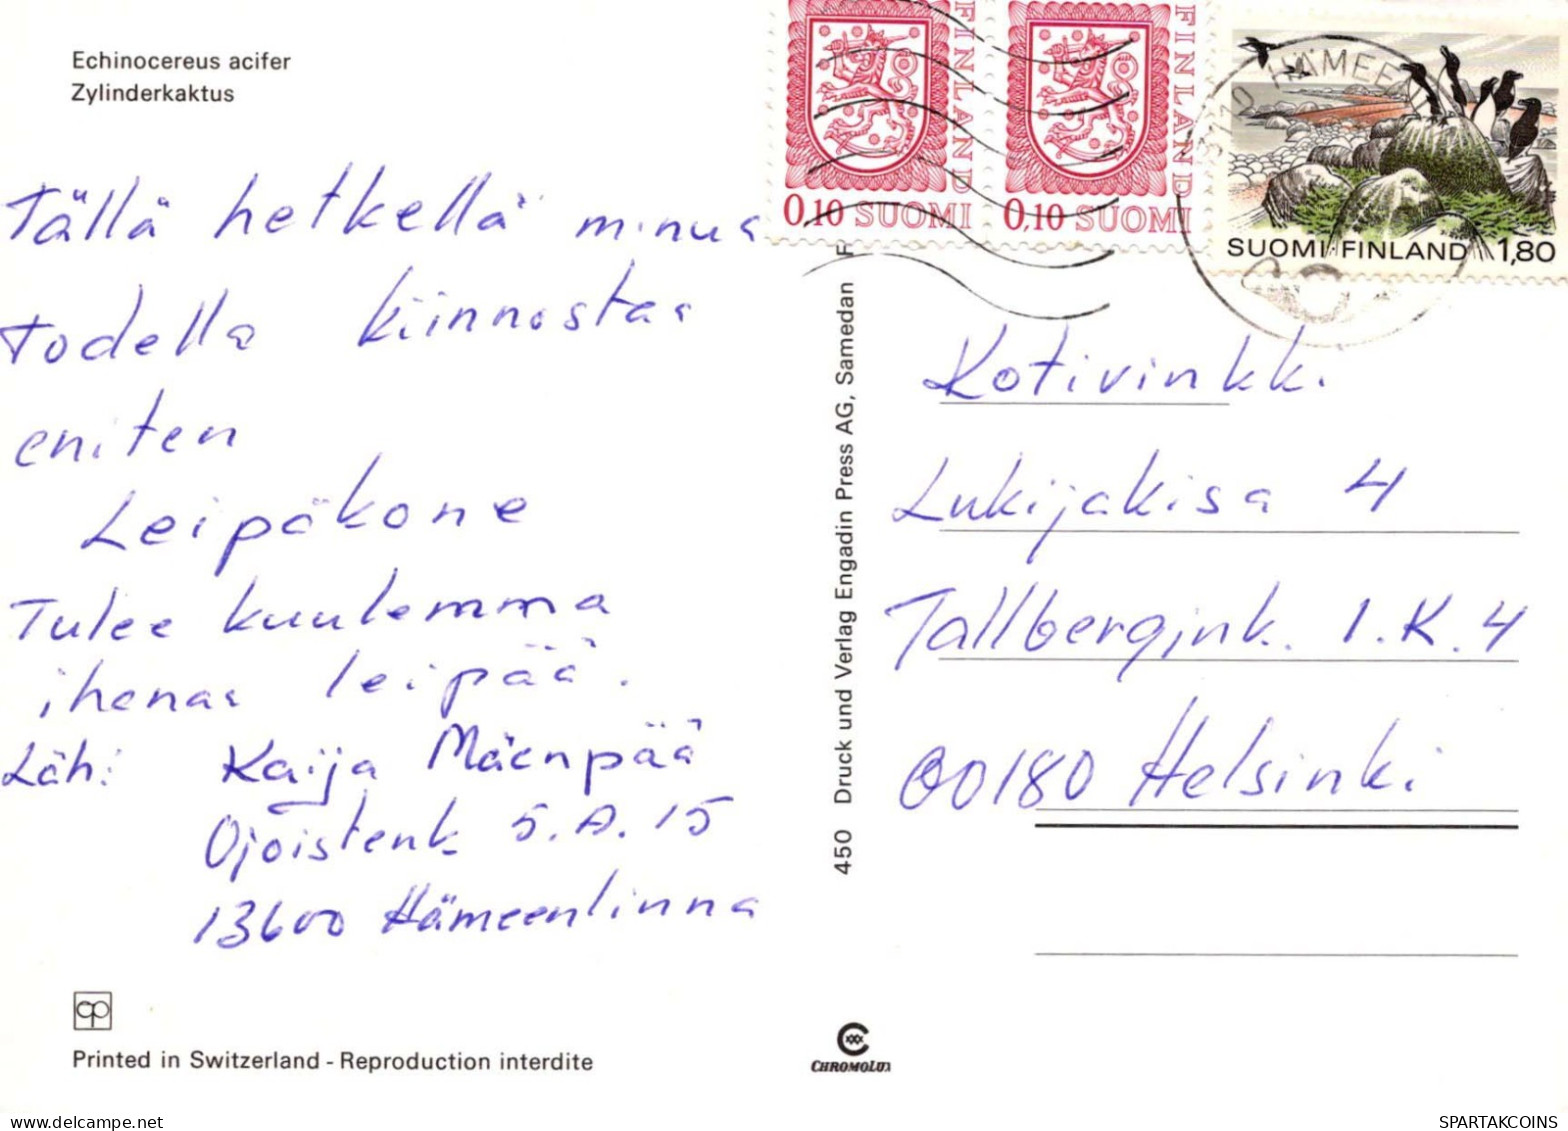 Echinocereus acifer
Zylinderkaktus
Tällä hetkellä minua
todella kiinnostaa
eniten
Leipäkone
Tulee kuulemma
ihanaa leipää.
Läh: Kaija Mäenpää
Ojoistenk 5.A.15
13600 Hämeenlinna
Printed in Switzerland - Reproduction interdite
450 Druck und Verlag Engadin Press AG, Samedan
CHROMOLUX
0,10 SUOMI
FINLAND
0,10 SUOMI
FINLAND
SUOMI FINLAND 1,80
Kotivinkki
Lukijakisa 4
Tallbergink. 1.K.4
00180 Helsinki
www.delcampe.net
SPARTAKCOINS